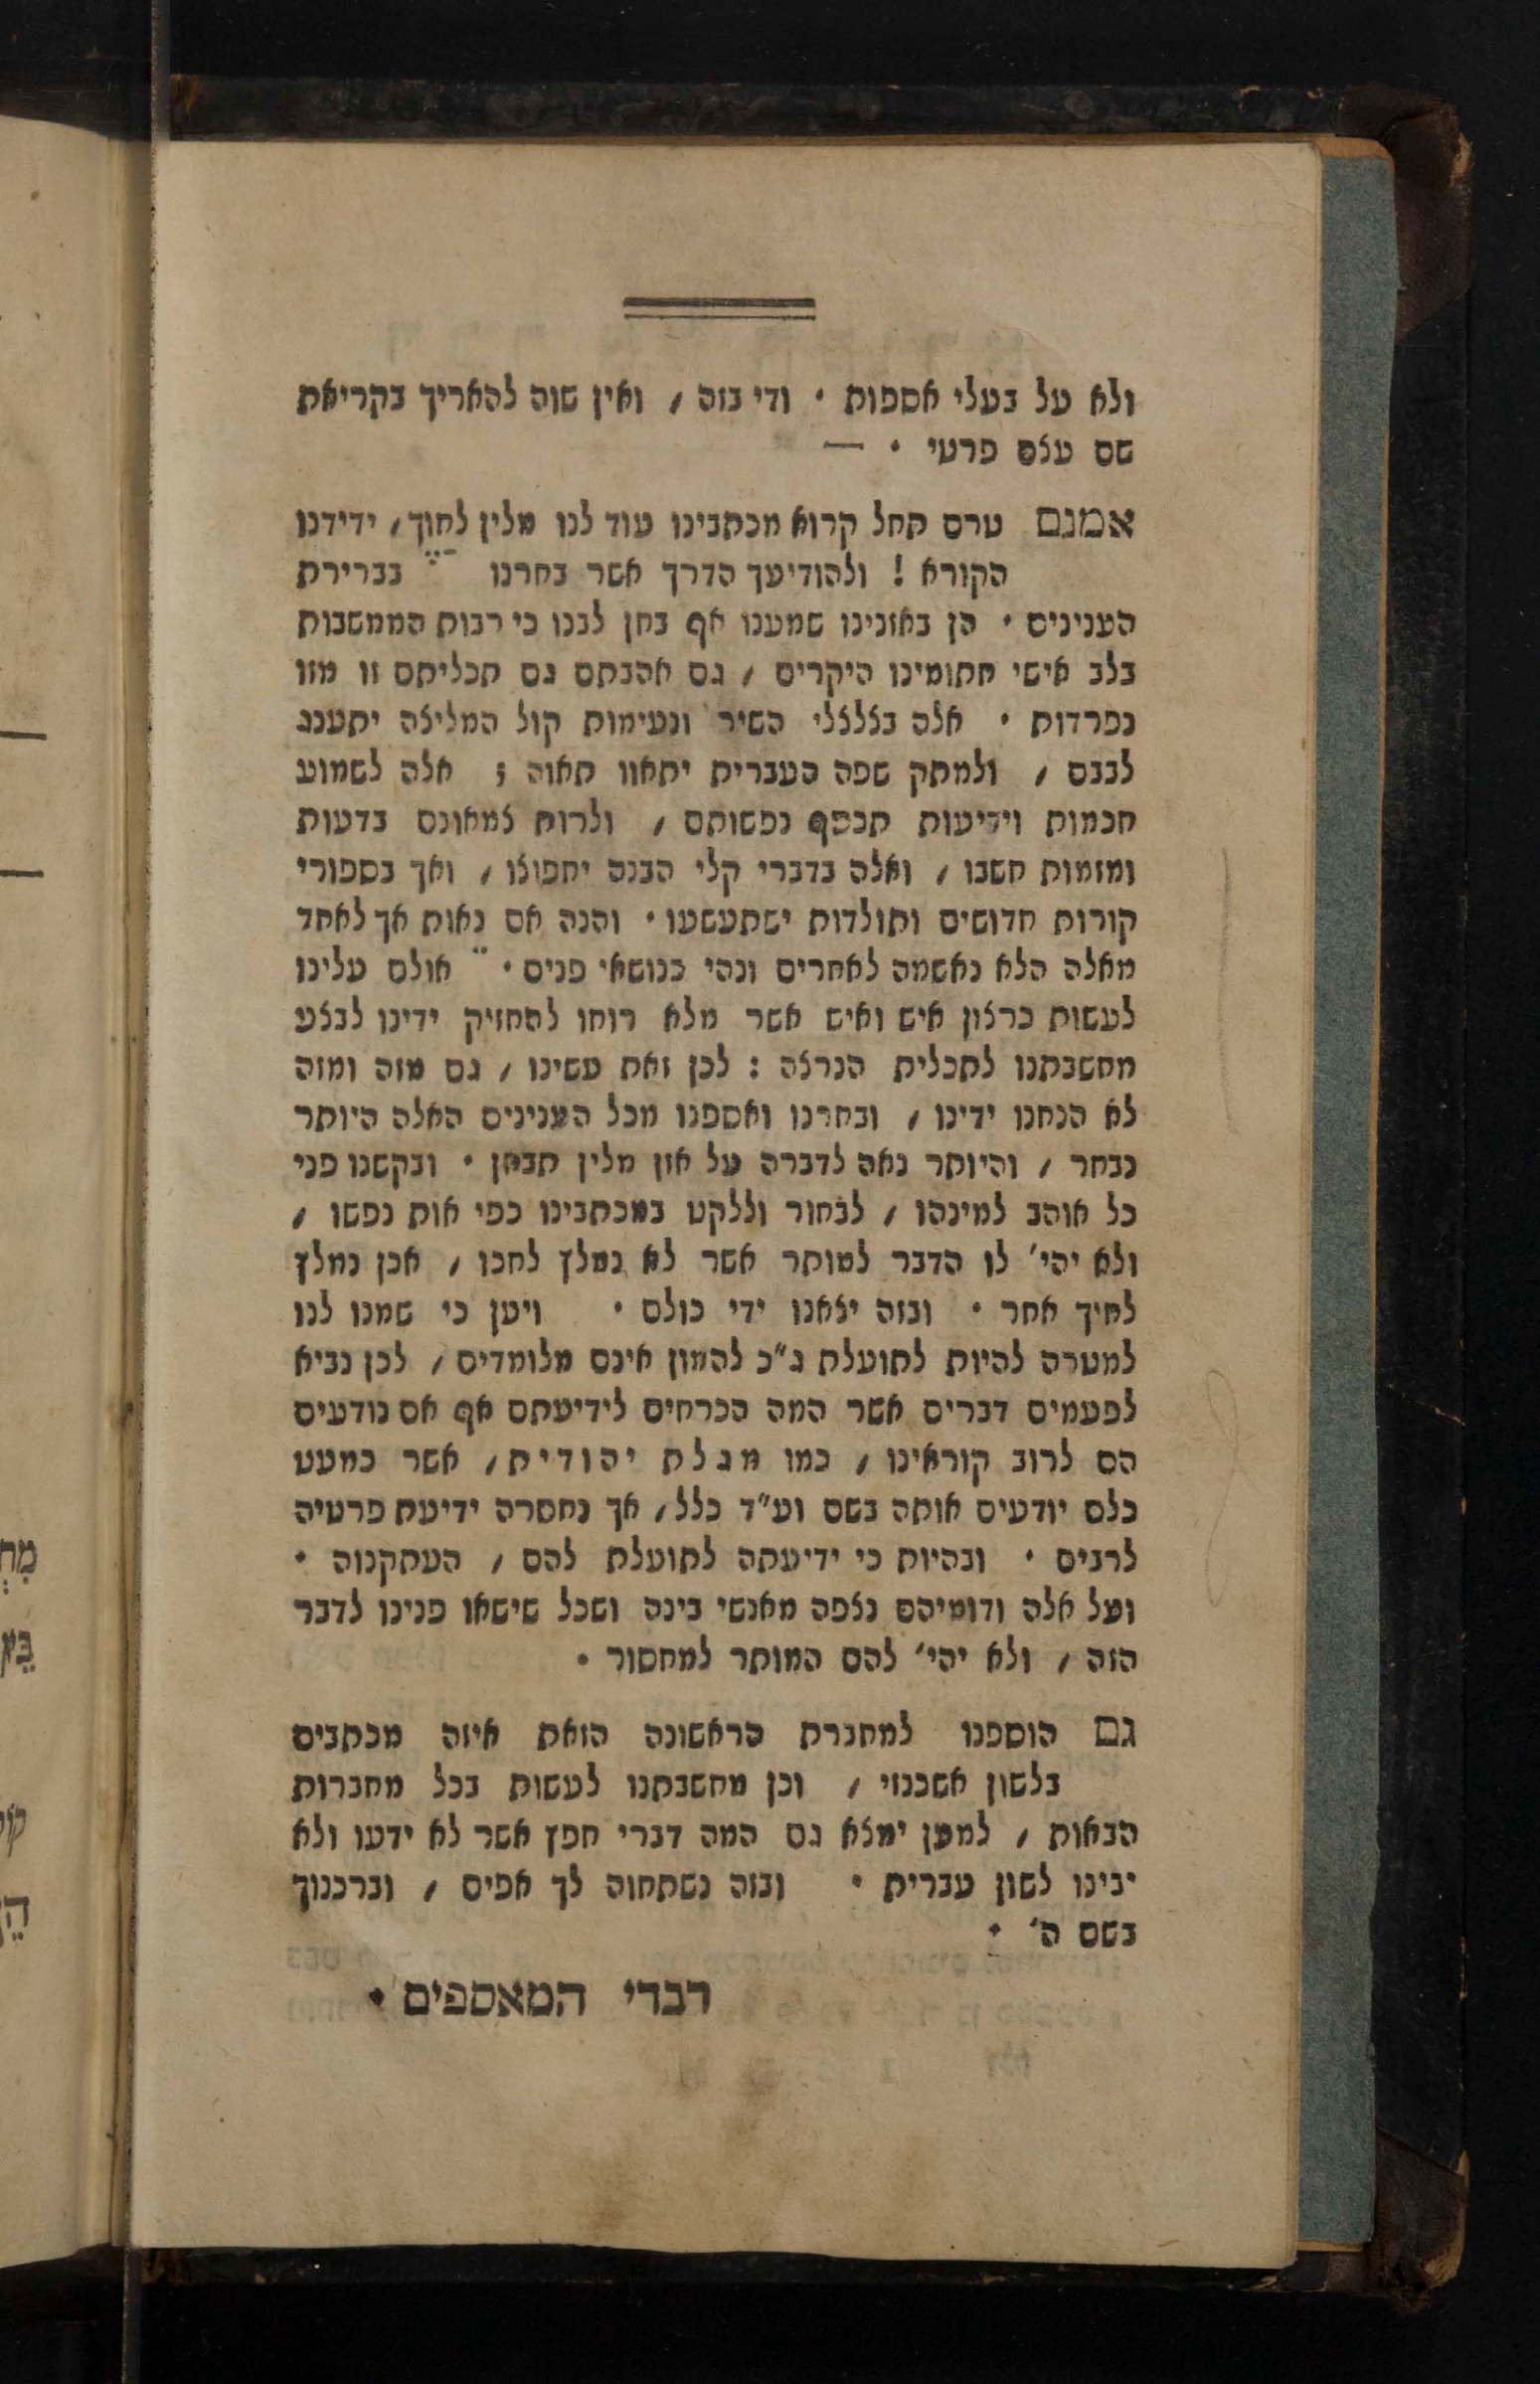 ולא על בעלי אספות · ודי בזה / ואין שוה להאריך בקריאת
שם עצם פרטי · —
אמנם טרם תחל קרוא מכתבינו עוד לנו מלין לחוך / ידידנו
הקורא ! ולהודיעך הדרך אשר בחרנו בברירת
הענינים · הן באזנינו שמענו אף בחן לבנו כי רבות הממשבות
בלב אישי חתומינו היקרים / גם אהבתם גם תכליתם זו מזו
נפרדות · אלה בצלצלי השיר ונעימות קול המליצה יתענג
לבבם / ולמתק שפה העברית יתאוו תאוה ; אלה לשמוע
חכמות וידיעות תכסף נפשותם / ולרוח צמאונם בדעות
ומזמות חשבו / ואלה בדברי קלי הבנה יחפוצו / ואך בספורי
קורות חדושים ותולדות ישתעשעו · והנה אם נאות אך לאחד
מאלה הלא נאשמה לאחרים ונהי כנושאי פנים · אולם עלינו
לעשות כרצון איש ואיש אשר מלא רוחו להחזיק ידינו לבצע
מחשבתנו לתכלית הנרצה : לכן זאת עשינו / גם מזה ומזה
לא הנחנו ידינו / ובחרנו ואספנו מכל הענינים האלה היותר
נבחר / והיותר נאה לדברה על אזן מלין תבחן · ובקשנו פני
כל אוהב למינהו / לבחור וללקט במכתבינו כפי אות נפשו /
ולא יהי׳ לו הדבר למותר אשר לא נמלץ לחכו / אכן נמלץ
לחיך אחר · ובזה יצאנו ידי כולם · ויען כי שמנו לנו
למטרה להיות לתועלת ג״כ להמון אינם מלומדים / לכן נביא
לפעמים דברים אשר המה הכרחים לידיעתם אף אם נודעים
הם לרוב קוראינו / כמו מגלת יהודית / אשר כמעט
כלם יודעים אותה בשם וע״ד כלל / אך נחסרה ידיעת פרטיה
לרבים · ובהיות כי ידיעתה לתועלת להם / העתקנוה ·
ועל אלה ודומיהם נצפה מאנשי בינה ושכל שישאו פנינו לדבר
הזה / ולא יהי׳ להם המותר למחסור ·
גם הוספנו למחברת הראשונה הזאת איזה מכתבים
בלשון אשכנזי / וכן מחשבתנו לעשות בכל מחברות
הבאות / למען ימצא גם המה דברי חפץ אשר לא ידעו ולא
יבינו לשון עברית · ובזה נשתחוה לך אפים / וברכנוך
בשם ה׳ ·
דברי המאספים ·